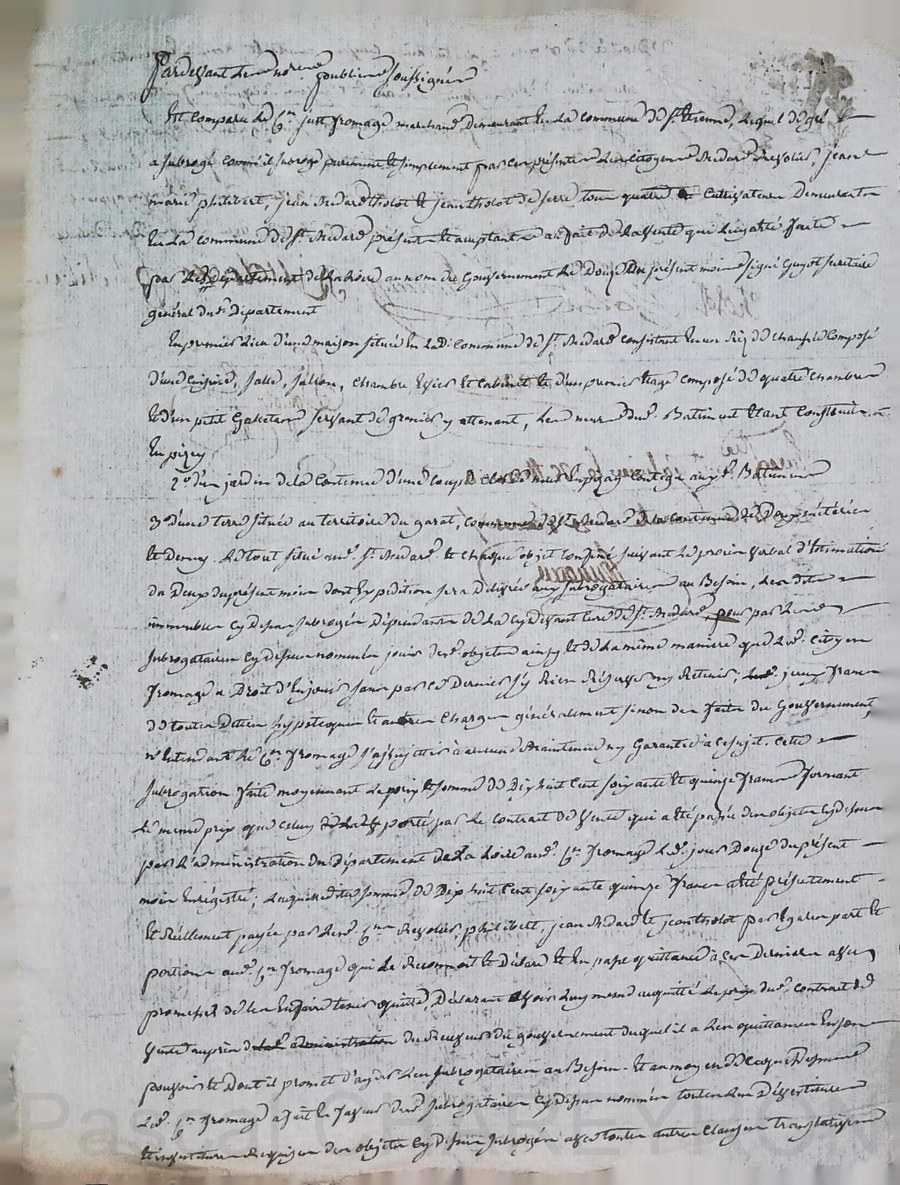 Pardevant Les nores publics soussignés
Est comparu Le Cen just fromage marchand, Demeurant En La commune de St Etienne, Lequel de gré
a subrogé comme il subroge purement et simplement par ces présentes Les citoyens Medard Revolier, jean
marie philibert, jean Medard tholot et jean tholot de serre tous quatre Cultivateurs Demeurants
En La commune de St Medard présents et acceptants au fait de La Vente qui lui a été faite
par Le Département de La Loire au nom du Gouvernement Le Douze Du présent mois signé Guyot secretaire
général dud. Département
En premier Lieu d'une maison située en Lad. Commune de St Medard Consistant En un Rez de chaussée Composé
d'une Cuisine, Salle, Sallon, Chambre Et Cabinet et d'un premier Etage composé de quatre chambres
Et d'un petit Galetas servant de grenier y attenant, Les murs dud. Batiment Etant Construits
En pizey
2° d'un jardin de La Contenue d'une coupe clos de murs En pizay Contigu aux d. Batiments
3° d'une terre située au territoire du garat, Commune de St Medard de La contenue de Deux méterées
Et Demy. Le tout situé aud. St Medard et chaque objet Confiné suivant Le procès verbal d'Estimation
du Deux du présent mois dont Expedition sera Délivrée aux subrogataires au Besoin, Lesdits
immeubles cy dessus subrogés Dépendants de La cy devant Cure de St Medard, pour par Les
subrogataires cy dessus nommés jouir desd. objets ainsy et de La même maniere que Led. citoyen
fromage a Droit d'En jouir sans par ce Dernier s'y Rien Réserver ny Retenir; francs
de toutes Dettes hypoteques et autres Charges généralement sinon des faits du Gouvernement,
n'Entendant Le Cen fromage s'assujettir à aucune Maintenue ny Garantie à ce sujet. Cette
subrogation faite moyennant Le prix et somme de Dix huit Cent soixante et quinze francs formant
Le meme prix que Celuy porté par Le Contrat de Vente qui a été passée des objets cy dessus
par L'administration du Département de La Loire aud. Cen fromage Led. jour Douze du présent
mois Enregistré; Laquelle somme de Dix huit Cent soixante quinze francs a été présentement
Et Réellement payée par Lesd. Cens Revolier philibert, jean Medard et jean tholot par Egales parts et
portions aud. Cen fromage qui Le Reconnoit et Déclare et En passe quittance à ces Derniers avec
promesse de les En faire tenir quitte, Déclarant avoir Luy meme acquitté Le prix dud. contrat de
Vente auprès du Receveur du gouvernement duquel il a Les quittances En son
pouvoir et Dont il promet d'ayder Les subrogataires au Besoin. Et au moyen de ce que Dessus
Led. Cen fromage a fait En faveur desd. subrogataires cy dessus nommés toutes Les Dévestitures
Et investitures Requises des objets cy dessus subrogés avec toutes autres Clauses translatives